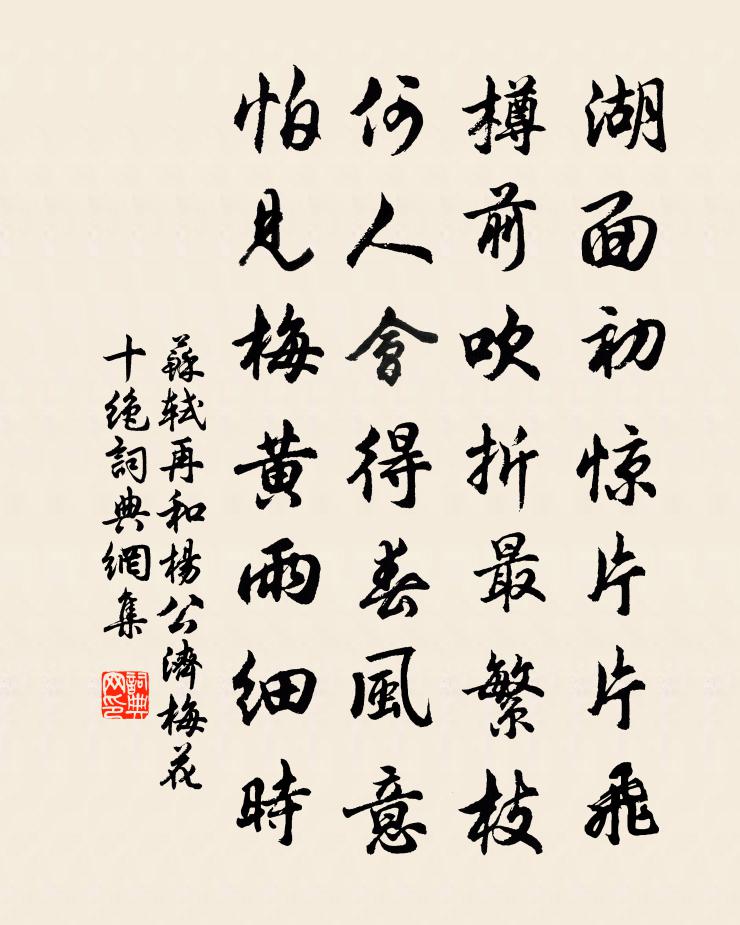 湖面初惊片片飛
樽前吹折最繁枝
何人會得春風意
怕見梅黃雨細時
蘇軾再和楊公濟梅花
十絶詞典網集
詞典
网印